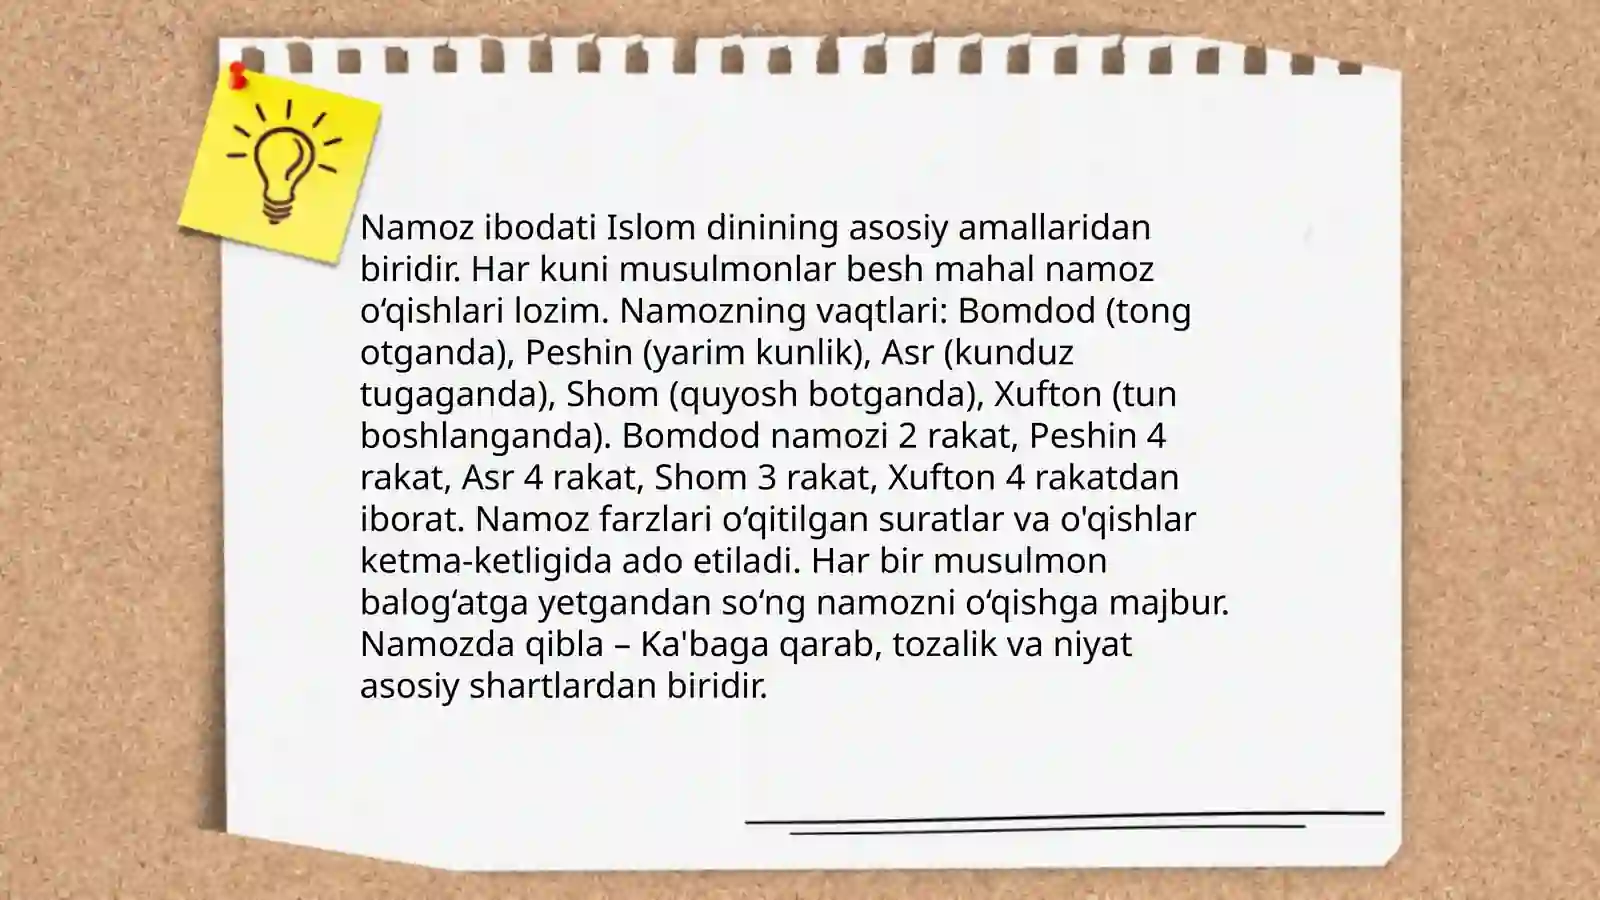 Namoz ibodati Islom dinining asosiy amallaridan
biridir. Har kuni musulmonlar besh mahal namoz
o‘qishlari lozim. Namozning vaqtlari: Bomdod (tong
otganda), Peshin (yarim kunlik), Asr (kunduz
tugaganda), Shom (quyosh botganda), Xufton (tun
boshlanganda). Bomdod namozi 2 rakat, Peshin 4
rakat, Asr 4 rakat, Shom 3 rakat, Xufton 4 rakatdan
iborat. Namoz farzlari o‘qitilgan suratlar va o'qishlar
ketma-ketligida ado etiladi. Har bir musulmon
balog‘atga yetgandan so‘ng namozni o‘qishga majbur.
Namozda qibla – Ka'baga qarab, tozalik va niyat
asosiy shartlardan biridir.